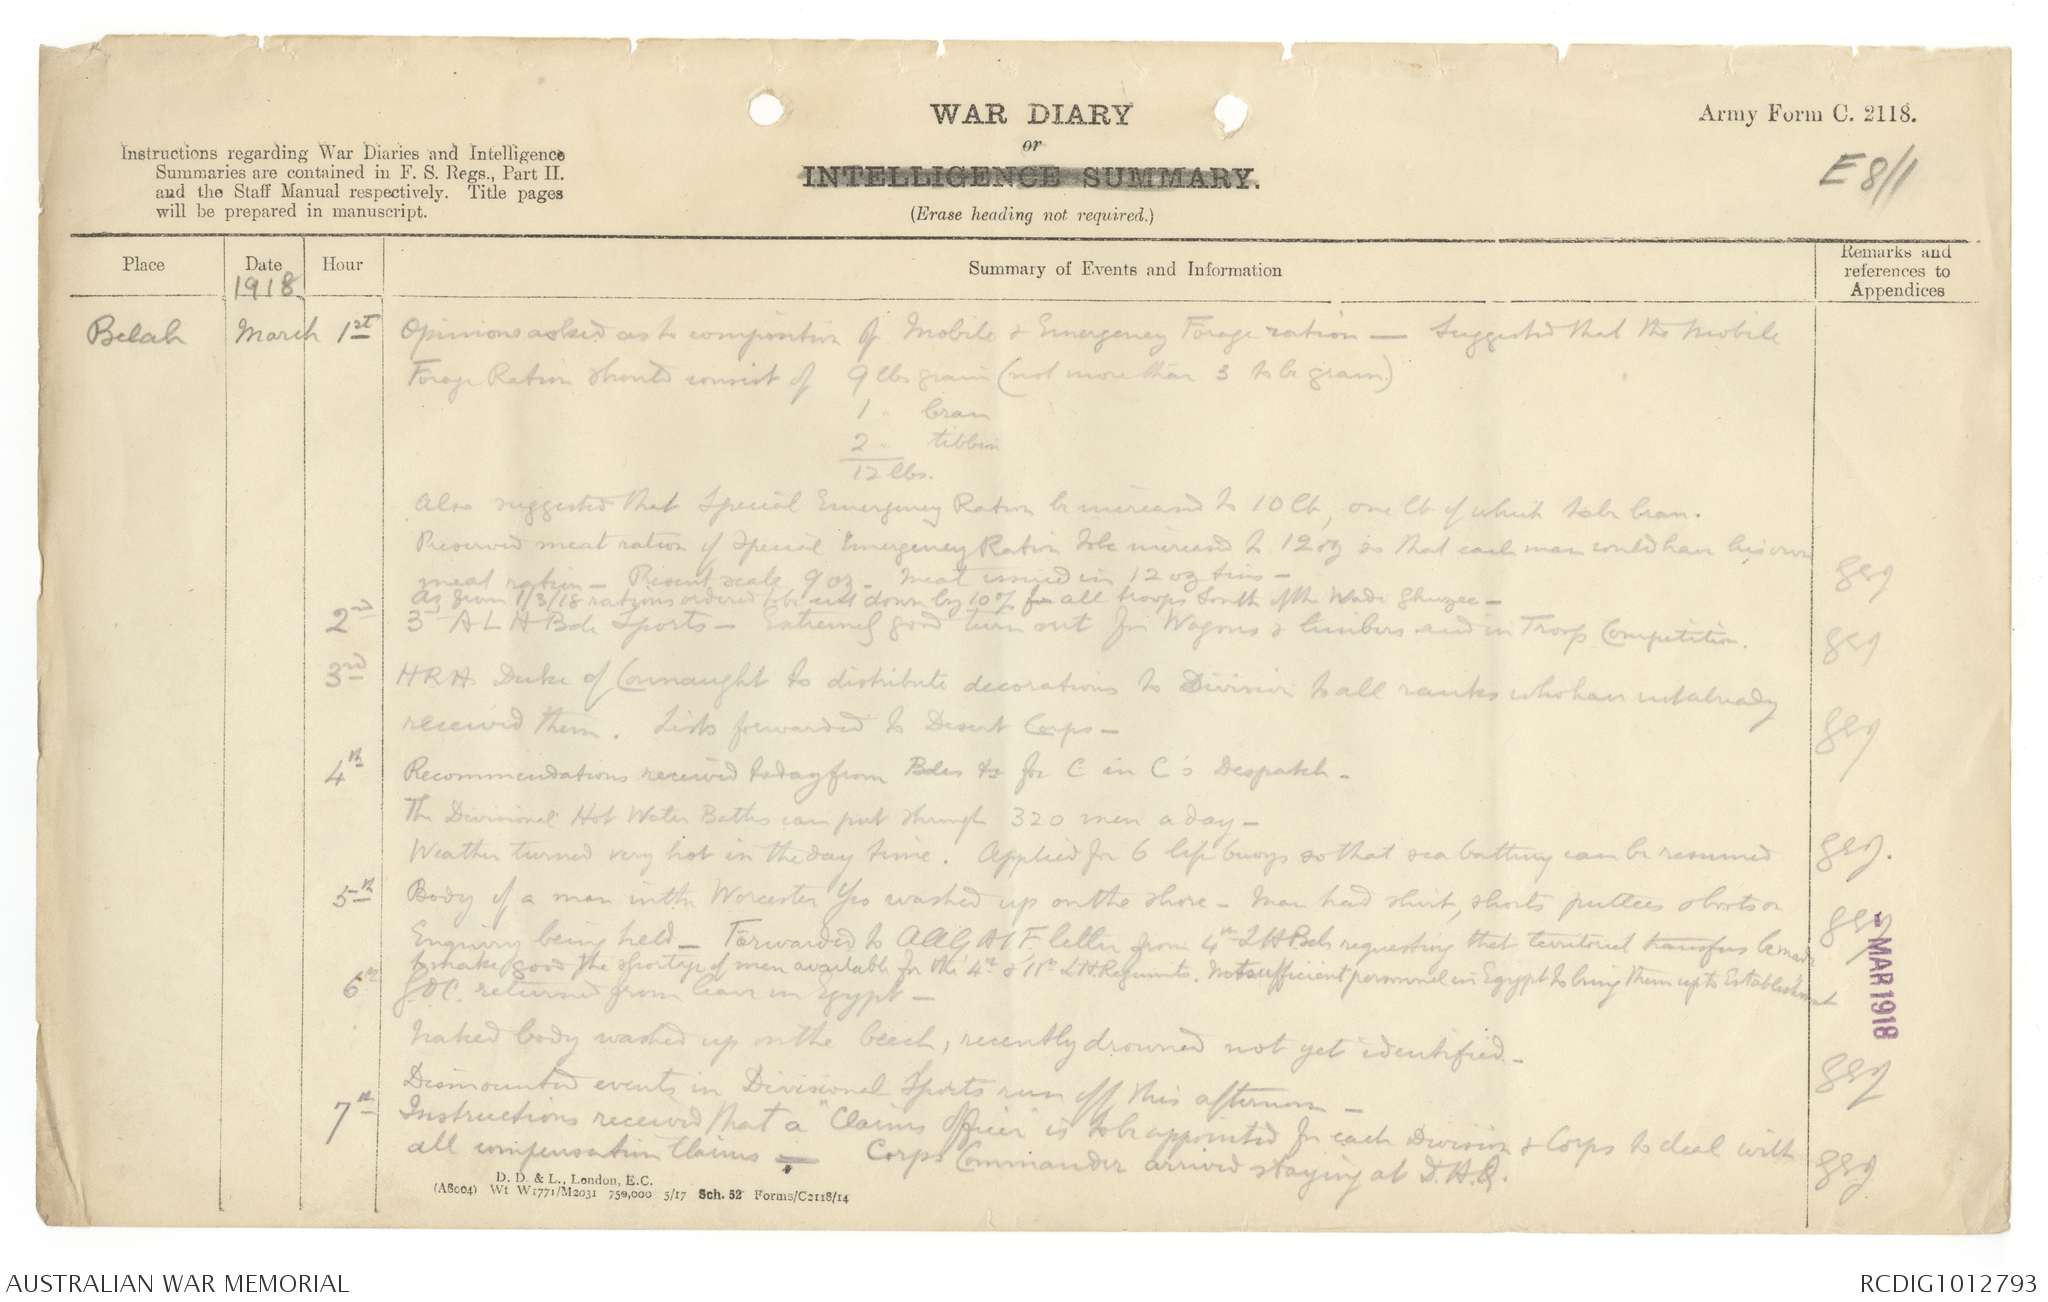 WAR DIARY
or
INTELLIGENCE SUMMARY.
(Erase heading not required.)
Army Form C. 2118.
E 8/1
Instructions regarding War Diaries and Intelligence
Summaries are contained in F. S. Regs., Part II.
and the Staff Manual respectively. Title pages
will be prepared in manuscript.
Place
Date
1918
Hour
Summary of Events and Information
Remarks and
references to
Appendices
Belah March 1st Opinions asked as to composition of Mobile & Emergency Forage ration — Suggested that the Mobile
Forage Ration should consist of 9 lbs grain (not more than 3 to be gram)
1 " bran
2 " tibbin
12 lbs.
Also suggested that Special Emergency Ration be increased to 10 lb, one lb of which to be bran.
Preserved meat ration of Special Emergency Ration to be increased to 12 oz so that each man could have his own
meat ration — Present scale 9 oz — Meat issued in 12 oz tins —
As from 1/3/18 rations ordered to be cut down by 10% for all troops South of the Wadi Ghuzee —
2nd 3rd A L H Bde Sports — Extremely good turn out for Wagons & limbers and in Troop Competition.
3rd HRH Duke of Connaught to distribute decorations to Division to all ranks who have not already
received them. Lists forwarded to Desert Corps —
4th Recommendations received today from Bdes &c for C in C's Despatch —
The Divisional Hot Water Baths can put through 320 men a day —
Weather turned very hot in the day time. Applied for 6 life buoys so that sea bathing can be resumed
5th Body of a man in the Worcester Yeo washed up on the shore — Man had shirt, shorts puttees & boots on
Enquiry being held — Forwarded to AAG AIF letter from 4th LH Bde requesting that territorial transfers be made
to make good the shortage of men available for the 4th & 11th LH Regiments. Not sufficient personnel in Egypt to bring them up to Establishment
6th G.O.C. returned from leave in Egypt —
Naked body washed up on the beech, recently drowned not yet identified —
Dismounted events in Divisional Sports run off this afternoon —
7th Instructions received that a "Claims Officer" is to be appointed for each Division & Corps to deal with
all compensation Claims — Corps Commander arrived staying at D.H.Q.
- MAR 1918
D. D. & L., London, E.C.
(A8004) Wt W1771/M2031 750,000 5/17 Sch. 52 Forms/C2118/14
AUSTRALIAN WAR MEMORIAL
RCDIG1012793